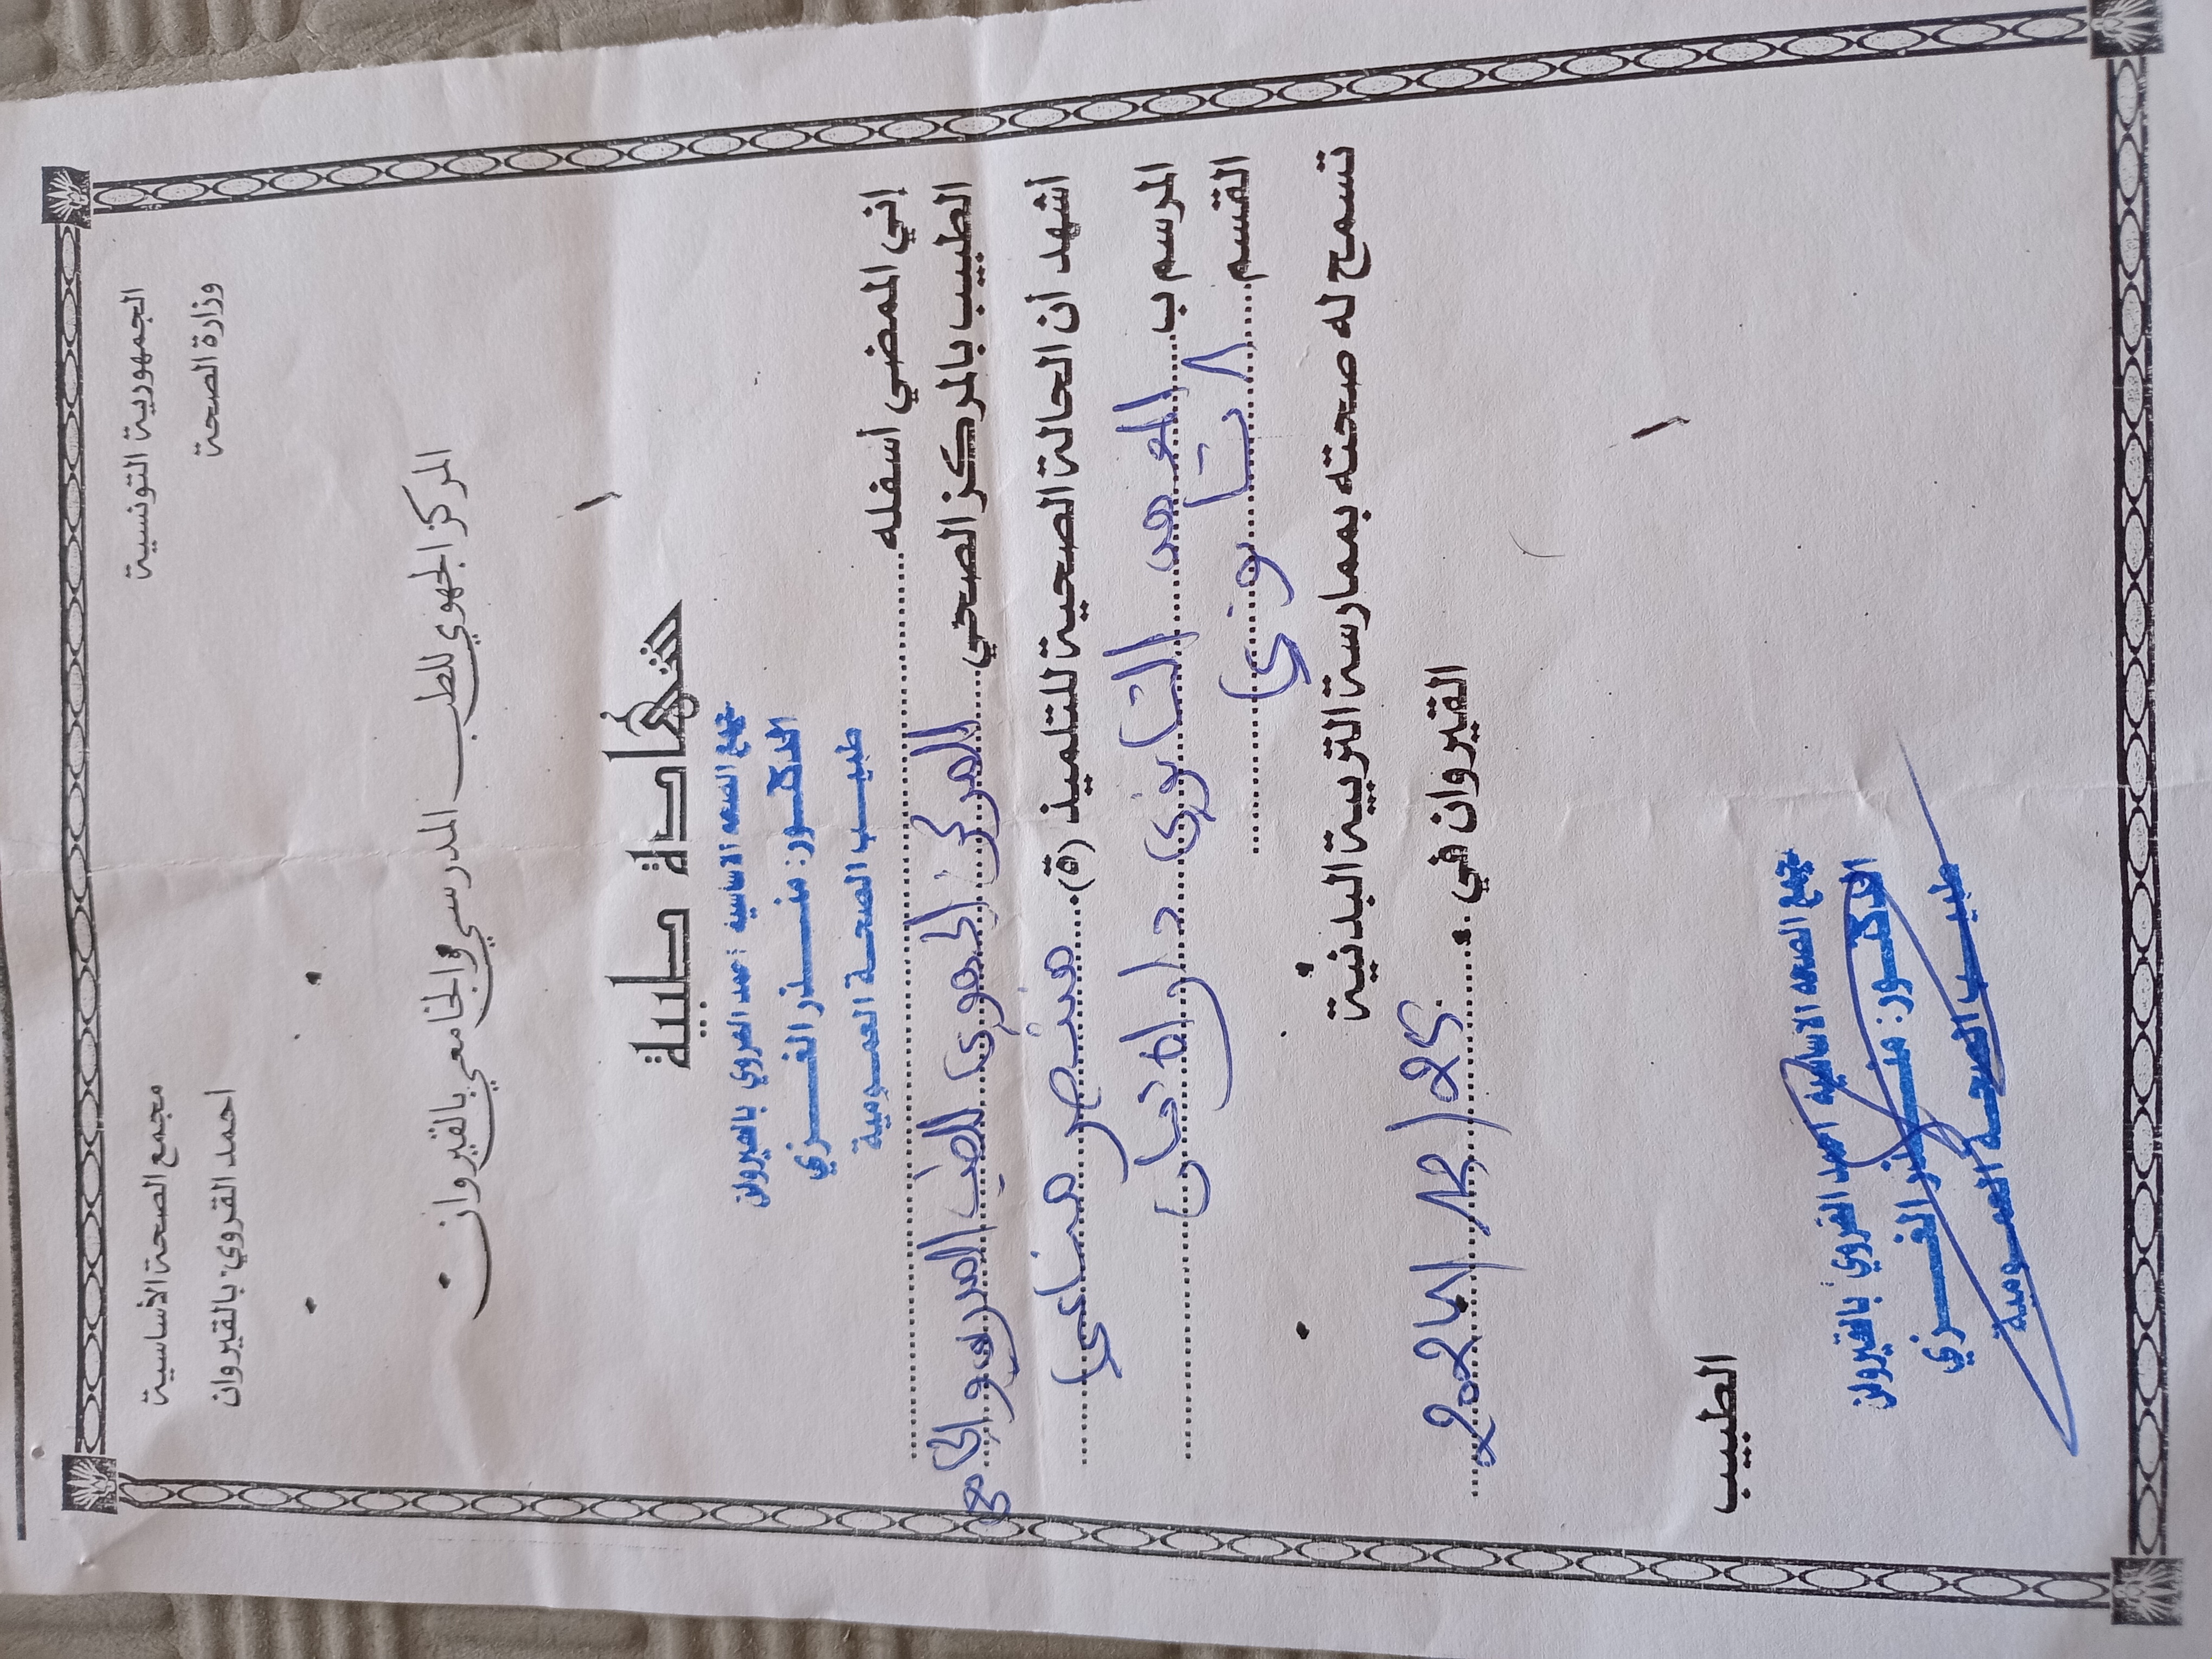 الجمهورية التونسية
وزارة الصحة
مجمع الصحة الأساسية
احمد القروي بالقيروان
المركز الجهوي للطب المدرسي والجامعي بالقيروان
شهادة طبية
مجمع الصحة الاساسية احمد القروي بالقيروان
الدكتور: منذر الغزي
طبيب الصحة العمومية
إني الممضي أسفله
الطبيب بالمركز الصحي المركز الجهوي للطب المدرسي والجامعي
أشهد أن الحالة الصحية للتلميذ (ة) منتصر مناعي
المرسم ب المعهد الثانوي دار الأمان
القسم 1 ثانوي
تسمح له صحته بممارسة التربية البدنية
القيروان في 25
الطبيب
مجمع الصحة الاساسية احمد القروي بالقيروان
الدكتور: منذر الغزي
طبيب الصحة العمومية